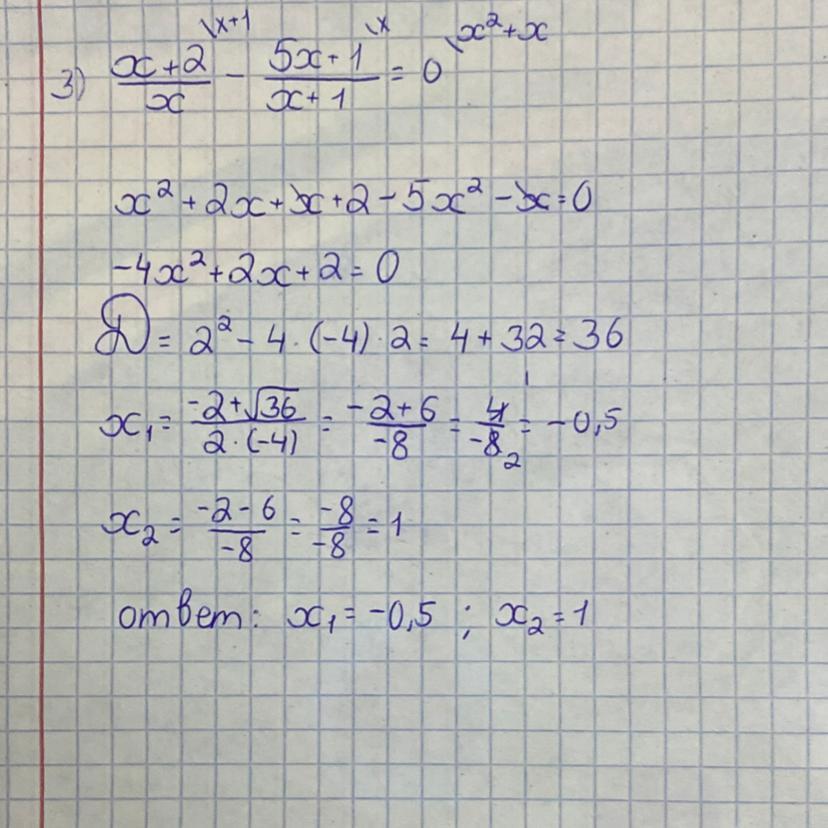 3) \frac{x+2}{x}^{\backslash x+1} - \frac{5x+1}{x+1}^{\backslash x} = 0^{\backslash x²+x}
x² + 2x + x + 2 - 5x² - x = 0
-4x² + 2x + 2 = 0
D = 2² - 4 · (-4) · 2 = 4 + 32 = 36
x₁ = \frac{-2+√36}{2·(-4)} = \frac{-2+6}{-8} = \frac{4^{1}}{-8_{2}} = -0,5
x₂ = \frac{-2-6}{-8} = \frac{-8}{-8} = 1
ответ: x₁ = -0,5 ; x₂ = 1